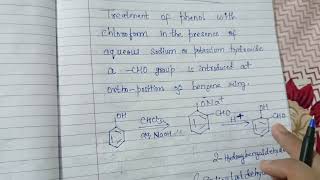 Treatment of phenol with
chloroform in the presence of
aqueous sodium or potassium hydroxide
a -CHO group is introduced at
ortho-position of benzene ring.
OH
CHCl3
aq NaOH
ONa+
CHO
H+
OH
CHO
2-Hydroxybenzaldehyde